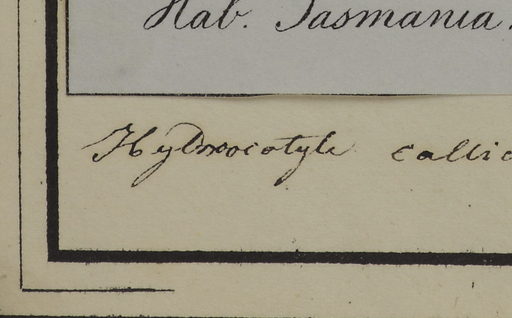 Hab. Tasmania.
Hydrocotyle callic